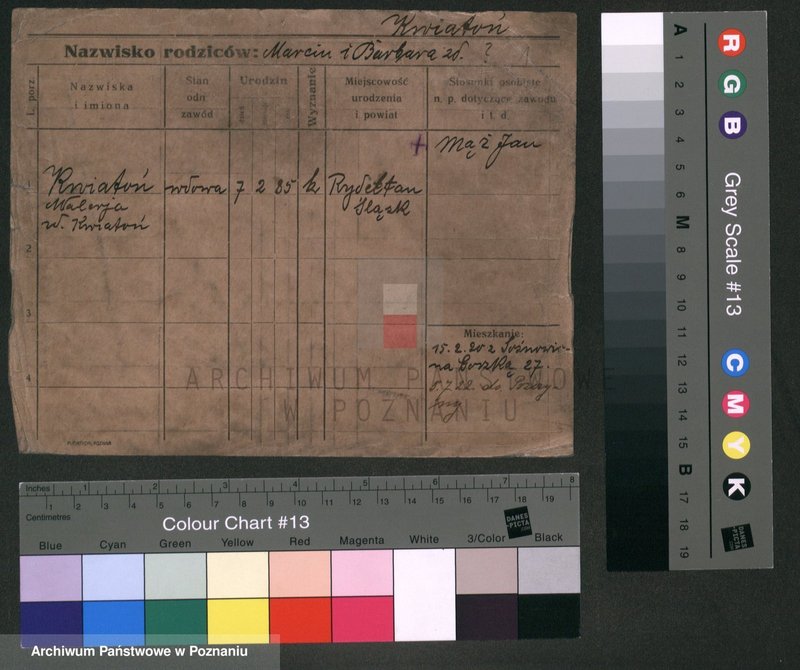 Kwiatoń
Nazwisko rodziców: Marcin i Barbara zd. ?
L. porz.
Nazwiska
i imiona
Stan
odn
zawód
Urodzin
Wyznanie
Miejscowość
urodzenia
i powiat
Stosunki osobiste
n. p. dotyczące zawodu
i t. d.
+ Mąż Jan
1 Kwiatoń wdowa 7 2 85 k Rydełtan
Śląsk
w. Kwiatoń
2
3
4
Mieszkanie:
15.2.20 z
na 27
do
ARCHIWUM PAŃSTWOWE
W POZNANIU
Inches 1 2 3 4 5 6 7 8
1 2 3 4 5 6 7 8 9 10 11 12 13 14 15 16 17 18 19
Centimetres
Colour Chart #13
DANES
PICTA
.COM
Blue Cyan Green Yellow Red Magenta White 3/Color Black
Archiwum Państwowe w Poznaniu
R G B
Grey Scale #13
C M Y K
DANES
PICTA
.COM
A 1 2 3 4 5 6 M 8 9 10 11 12 13 14 15 B 17 18 19